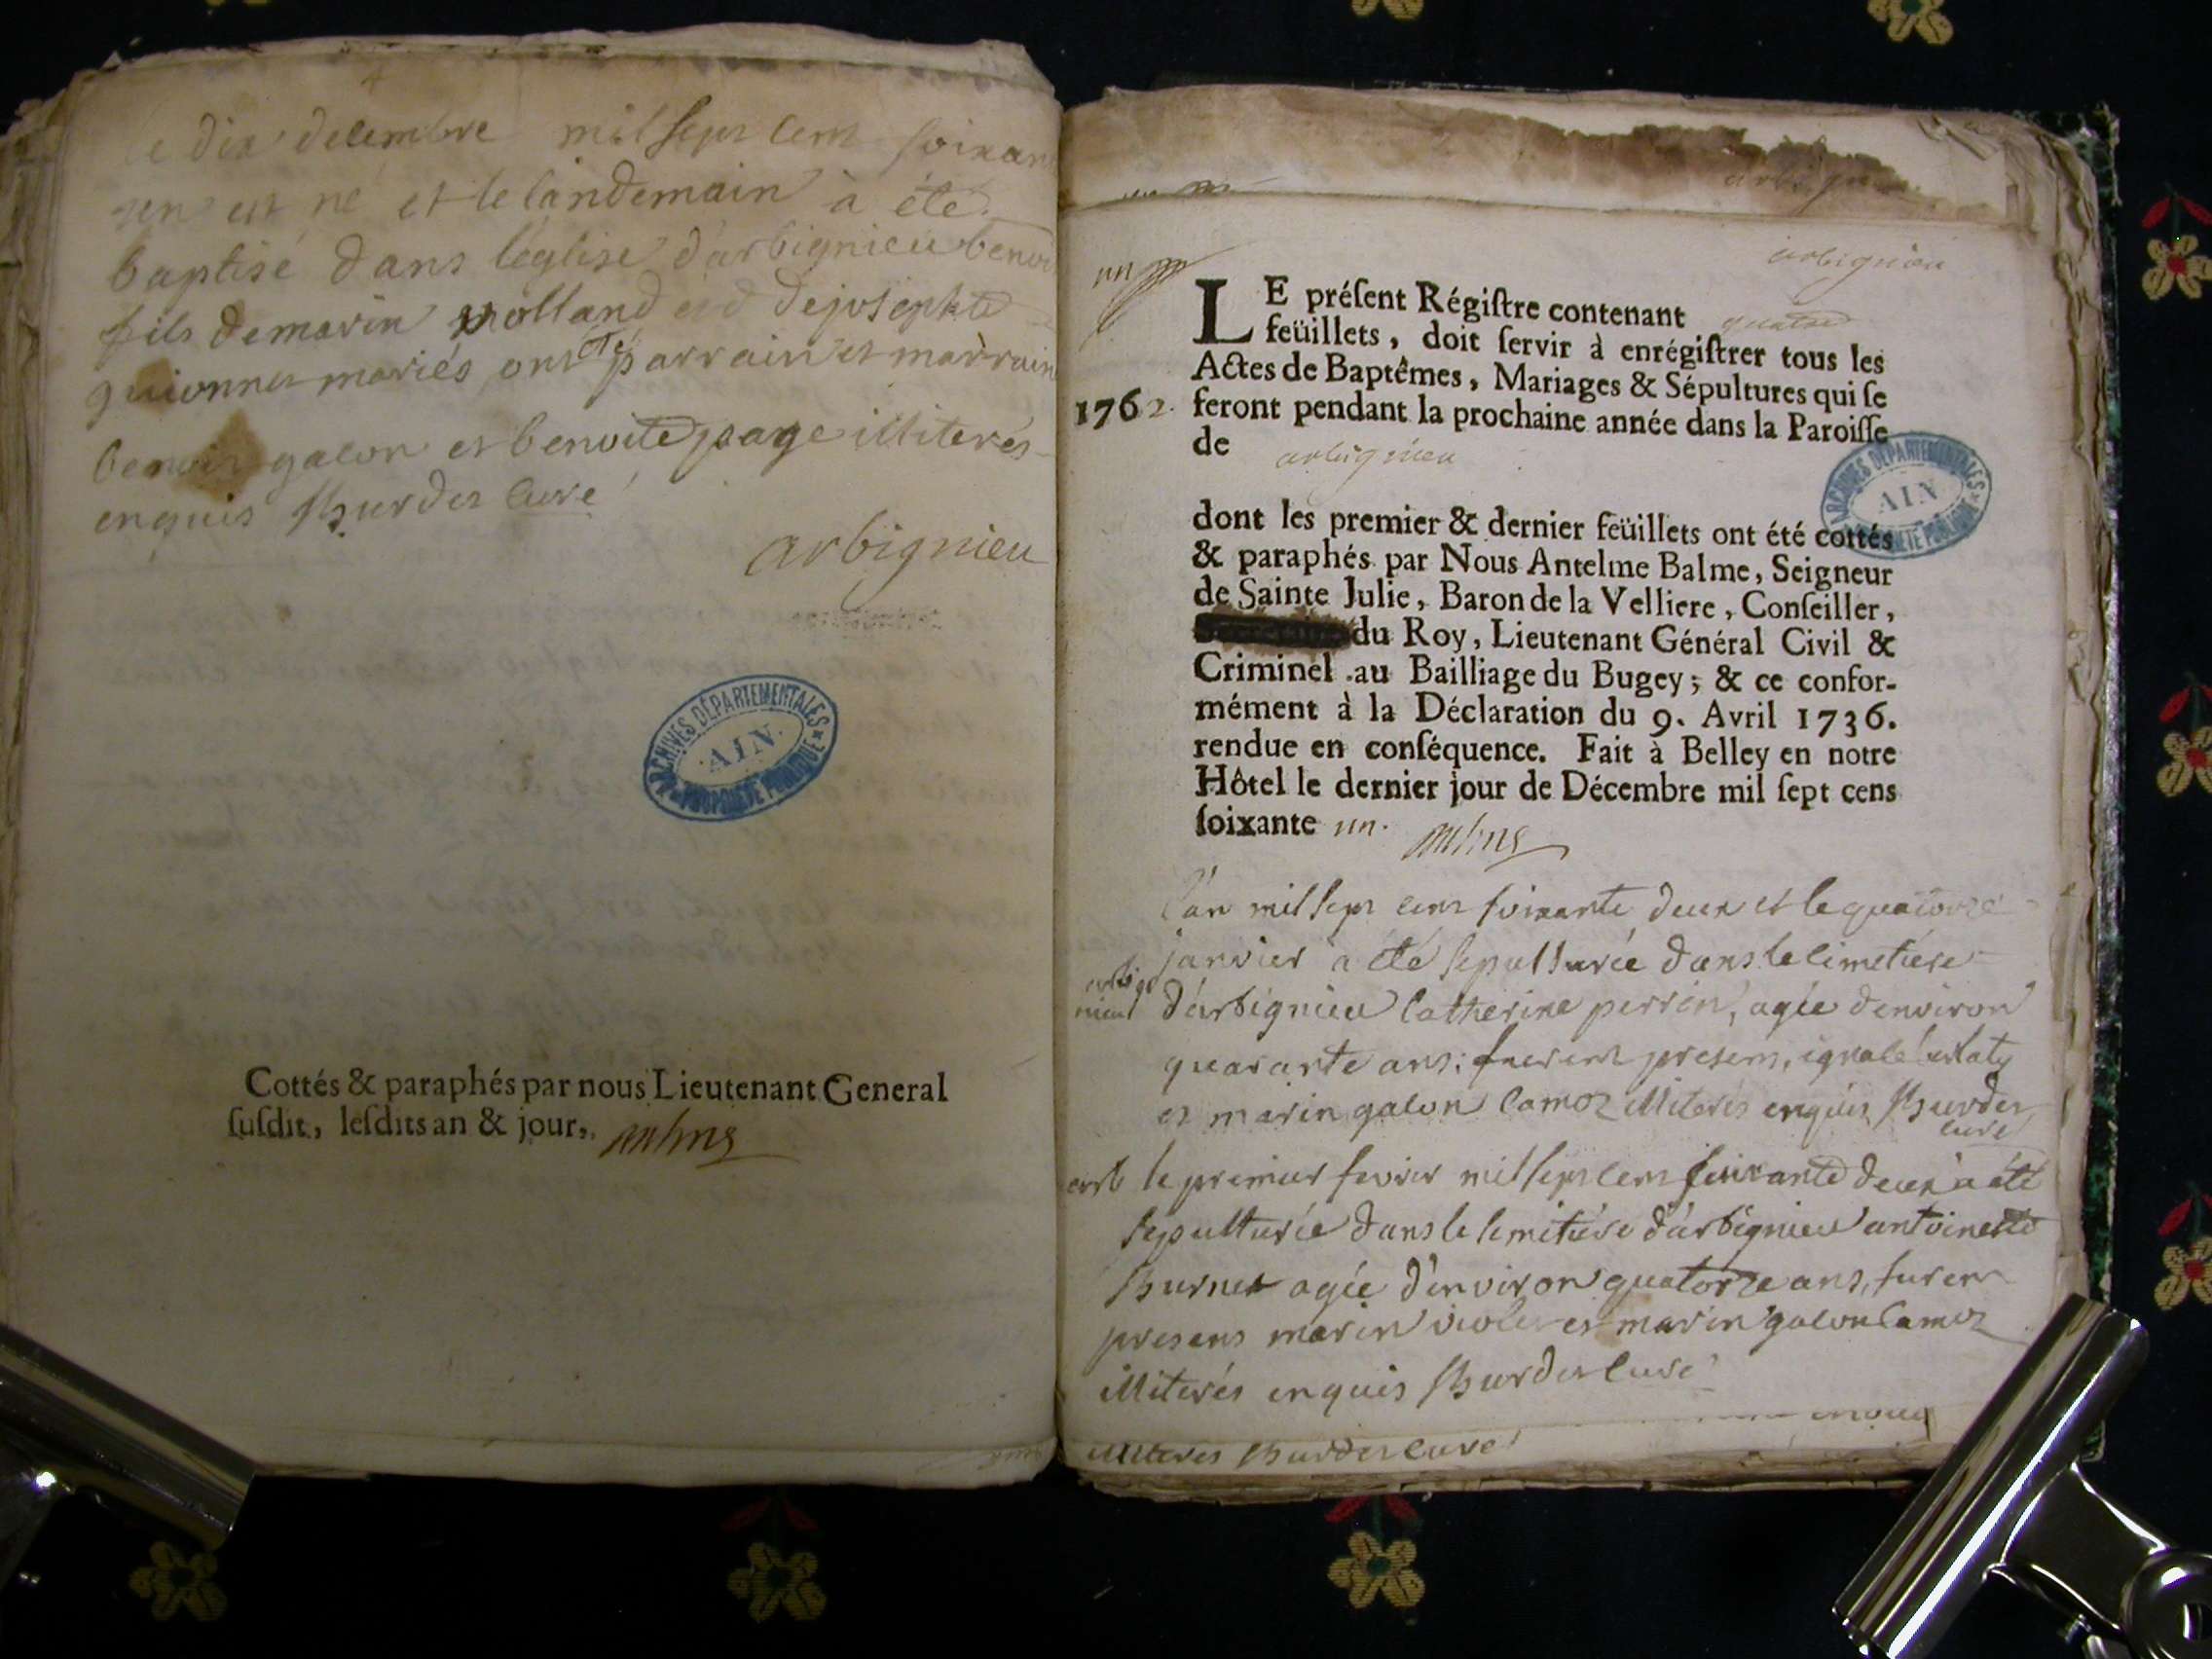 4
le dix decembre mil sept cent soixan
un est né et le landemain à été
baptisé dans l'eglise d'arbignieu benoi
fils de marin rolland et de josephte
guionnet mariés, ont été parrain et marrain
benoit galon et benoite page illiterés
enquis Burdet curé
arbignieu
ARCHIVES DÉPARTEMENTALES
AIN
PROPRIÉTÉ PUBLIQUE
Cottés & paraphés par nous Lieutenant General
ſuſdit, leſdits an & jour,
arbignieu
un
LE préſent Régiſtre contenant quatre
feüillets, doit ſervir à enrégiſtrer tous les
Actes de Baptêmes, Mariages & Sépultures qui ſe
1762. feront pendant la prochaine année dans la Paroiſſe
de arbignieu
ARCHIVES DÉPARTEMENTALES
AIN
PROPRIÉTÉ PUBLIQUE
dont les premier & dernier feüillets ont été cottés
& paraphés par Nous Antelme Balme, Seigneur
de Sainte Julie, Baron de la Velliere, Conſeiller,
du Roy, Lieutenant Général Civil &
Criminel au Bailliage du Bugey; & ce confor-
mément à la Déclaration du 9. Avril 1736.
rendue en conſéquence. Fait à Belley en notre
Hôtel le dernier jour de Décembre mil ſept cens
ſoixante un.
l'an mil sept cent soixante deux et le quatorze
janvier a été sepulturée dans le cimetiére
arbignieu d'arbignieu Catherine perrin, agée d'environ
quarante ans: furent present,
et marin galon Camoz illiterés enquis Burdet
curé
arb le premier fevrier mil sept cent soixante deux a été
sepulturée dans le cimetiére d'arbignieu antoinette
Burnet agée d'environ quatorze ans, furent
presens marin violet et marin galon Camoz
illiterés enquis Burdet Curé
enquis
illiterés Burdet curé